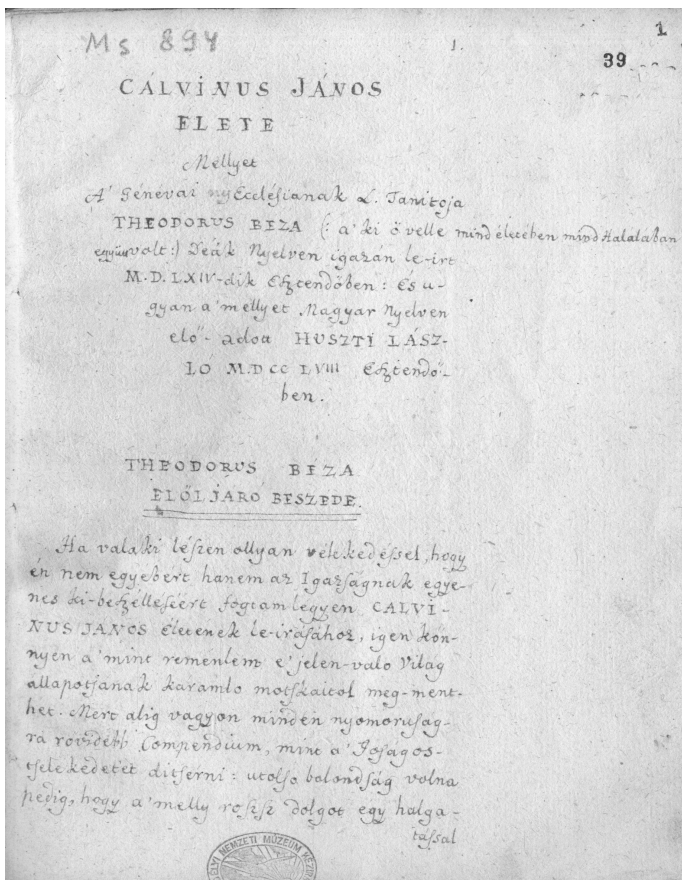 Ms 894
1.
1
39
CALVINUS JÁNOS
ELETE
Mellyet
A' Génevai nyEcclésianak L. Tanitoja
THEODORUS BEZA (: a' ki ő velle mind életében mind Halalaban
együtt volt:) Deák Nyelven igazán le-irt
M.D.LXIV-dik Esztendőben: és u-
gyan a' mellyet Magyar Nyelven
elő-adoa HUSZTI LÁSZ-
LÓ M.DCC LVIII Esztendő-
ben.
THEODORUS BÉZA
ELŐLJÁRÓ BESZEDE.
Ha valaki lészen ollyan vélekedéssel, hogy
én nem egyebert hanem az Igazságnak egye-
nes ki-beszélleséért fogtam légyen CALVI-
NUS JANOS Életenek le-irásához, igen kön-
nyen a' mint reménlem e' jelen-valo Világ
állapotjanak karamlo motskaitol meg-ment-
het. Mert alig vagyon minden nyomoruság-
ra rovidebb Compendium, mint a' Joságos-
tselekedetet ditsérni: utolso bolondság volna
pedig, hogy a' melly rossz dolgot egy halga-
tassal
ELYI NEMZETI MÚZEUM KÉZIR